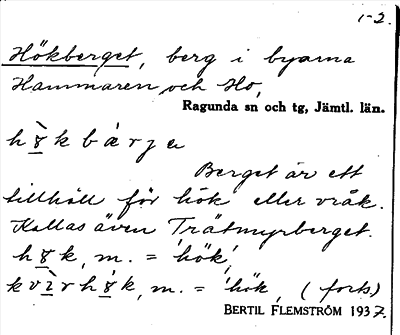 1-2.
Hökberget, berg i byarna
Hammaren och Ho,
Ragunda sn och tg, Jämtl. län.
Berget är ett
tillhåll för hök eller vråk.
Kallas även Trätmyrberget.
m. = 'hök',
m. = 'hök, (forts)
BERTIL FLEMSTRÖM 1937.